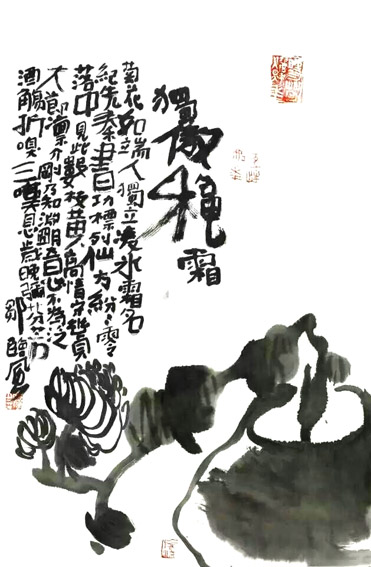 獨傲穐霜
菊花如端人獨立凌冰霜名
紀先秦書功標列仙方紛々零
落中見此數枝黃高情守幽貞
大節凜介剛乃知淵明意不為泛
酒觴折嗅三嘆息歲晚彌芬芳
鄒臨風